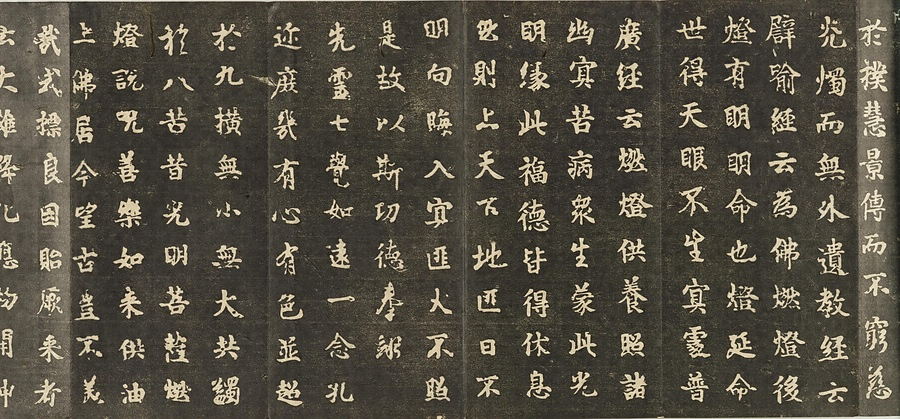 於揆慧景傳而不窮慈
光燭而無外遺教經云
譬喻經云為佛燃燈後
燈有明明命也燈延命
世得天眼不生冥處普
廣經云燃燈供養照諸
幽冥苦病眾生蒙此光
明緣此福德皆得休息
然則上天下地匪日不
明向晦入冥匪火不照
是故以斯功德奉翊
先靈七覺如遠一念孔
近庶幾有心有色並超
於九橫無小無大共蠲
於八苦昔光明菩薩燃
燈說咒善樂如來供油
上佛居今望古豈不美
哉式標良因貽厥来者
大雄